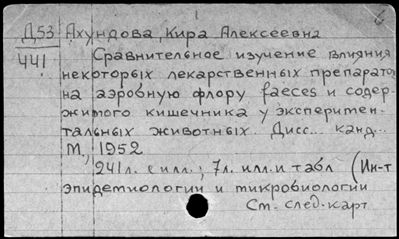 Д53 Ахундова, Кира Алексеевна
441 Сравнительное изучение влияния
некоторых лекарственных препаратов
на аэробную флору faeces и содер-
жимого кишечника у эксперимен-
тальных животных. Дисс... канд...
М., 1952
241л. с илл.; 7л. илл. и табл (Ин-т
эпидемиологии и микробиологии
См. след. карт